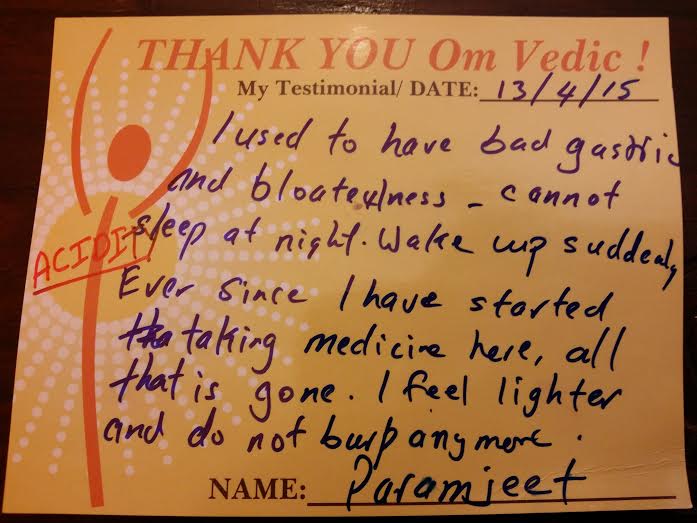 THANK YOU Om Vedic !
My Testimonial/ DATE: 13/4/15
I used to have bad gastric
and bloatedness - cannot
sleep at night. Wake up suddenly
ACIDITY
Ever since I have started
taking medicine here, all
that is gone. I feel lighter
and do not burp anymore.
NAME: Paramjeet